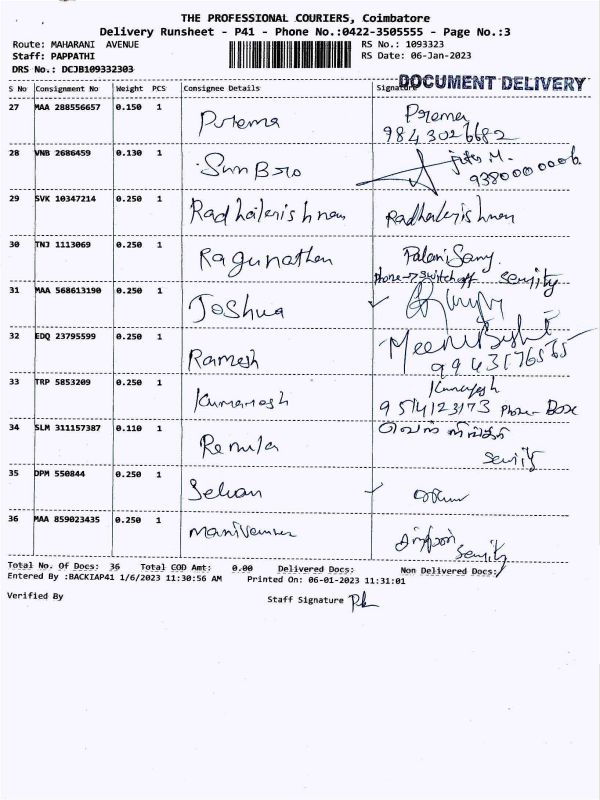 THE PROFESSIONAL COURIERS, Coimbatore
Delivery Runsheet - P41 - Phone No.:0422-3505555 - Page No.:3
Route: MAHARANI AVENUE RS No.: 1093323
Staff: PAPPATHI RS Date: 06-Jan-2023
DRS No.: DCJB109332303
DOCUMENT DELIVERY
S No Consignment No Weight PCS Consignee Details Signature
27 MAA 288556657 0.150 1 Prema Prema
9843026682
28 VNB 2686459 0.130 1 Sun Bro
9380000006
29 SVK 10347214 0.250 1 Radhakrishnan Radhakrishnan
30 TNJ 1113069 0.250 1 Ragunathan Palani Samy
Phone -> Switch off
31 MAA 568613190 0.250 1 Joshua
32 EDQ 23795599 0.250 1 Ramesh
9943176565
33 TRP 5853209 0.250 1 Kumaresh
9514123173 Phone - Box
34 SLM 311157387 0.110 1 Remula
35 DPM 550844 0.250 1 Selvan
36 MAA 859023435 0.250 1
Total No. Of Docs: 36 Total COD Amt: 0.00 Delivered Docs: Non Delivered Docs:
Entered By :BACKIAP41 1/6/2023 11:30:56 AM Printed On: 06-01-2023 11:31:01
Verified By Staff Signature